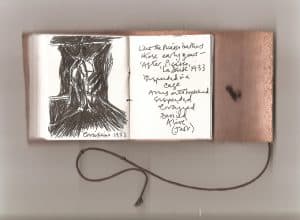 Crucifixion 1933
Like the Picasso
those early years —
'After, Picasso,
1933
Suspended in a
cage
Arms outstretched
Suspended
Enraged
Denied
Alive
(Just)